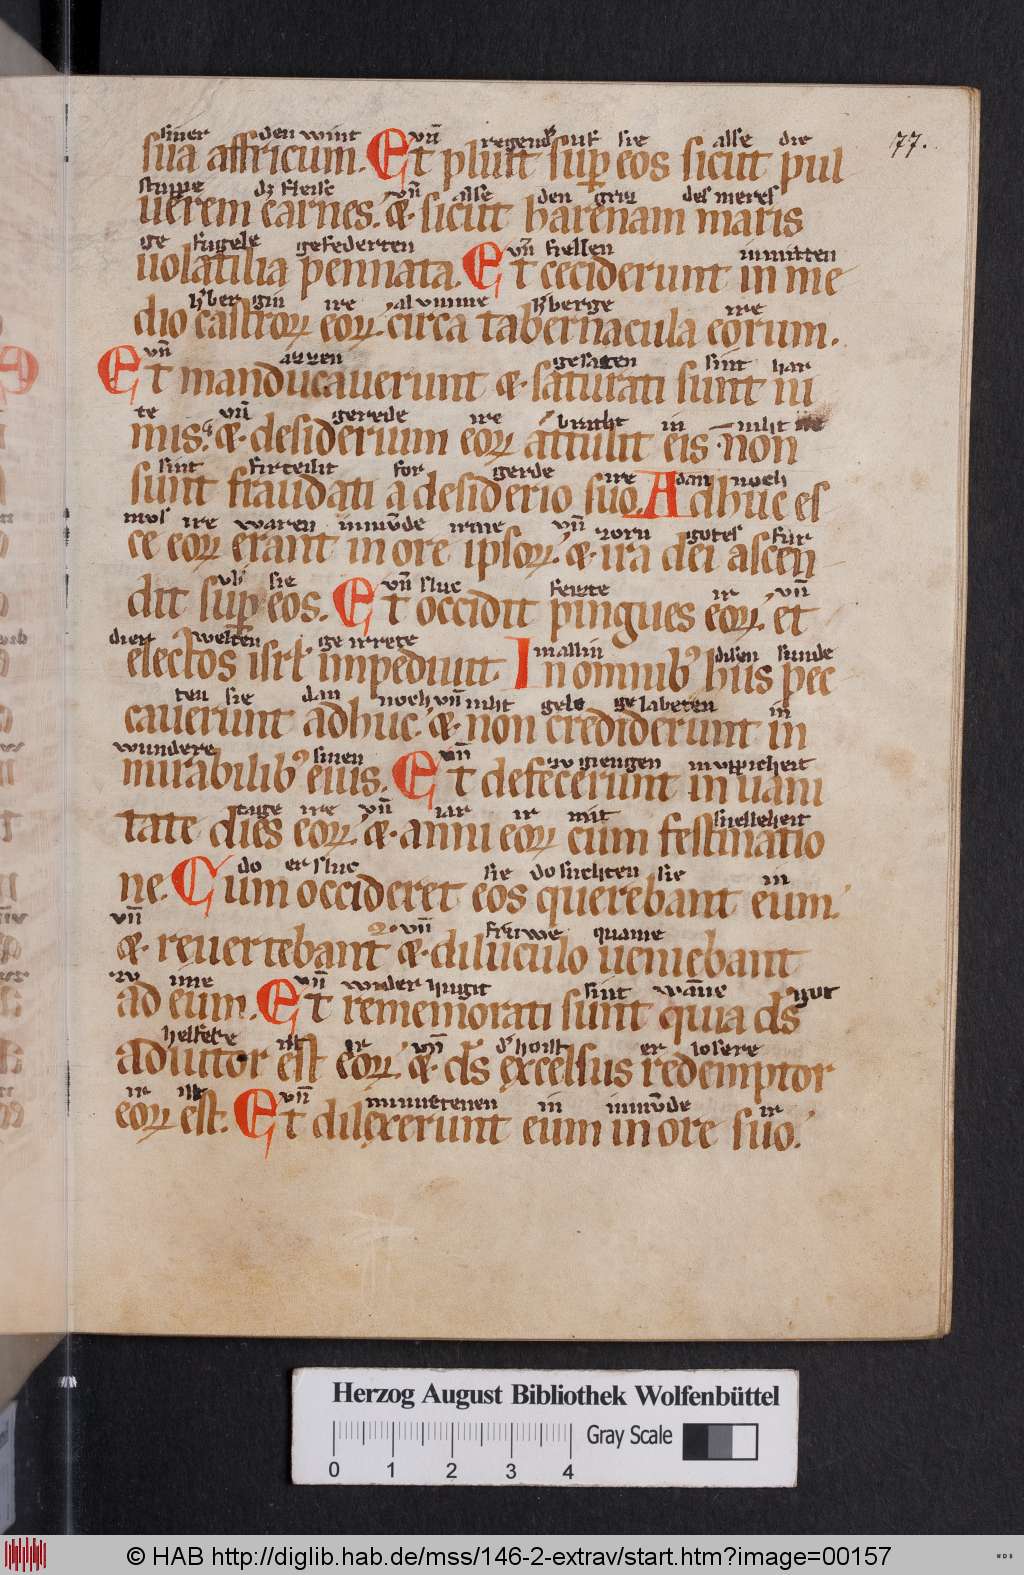 siner den wint vn̄ regend ouf sie alse die
77.
sua affricum. Et pluit sup eos sicut pul
stuppe dz fleisc vn̄ alse den griz des meres
uerem carnes. & sicut harenam maris
ge fugele gefederten vn̄ fiellen inmitten
uolatilia pennata. Et ceciderunt in me
ire al umme ire
dio castroꝝ eoꝝ. circa tabernacula eorum.
vn̄ azzen gesateten sint har
Et manducauerunt &. saturati sunt ni
te vn̄ gerede ire bracht in niht
mis. &. desiderium eoꝝ attulit eis. non
sint firteilit for gerde ire dan noch
sunt fraudati a desiderio suo. Adhuc es
mus ire waren inmūde irme vn̄ zorn gotes fůr
ce eoꝝ erant in ore ipsoꝝ. &. ira dei ascen
sie vn̄ sluc feizte ir vn̄
dit sup eos. Et occidit pingues eoꝝ. et
dien welten ge irrete in allin disen sunde
electos isrl' impediuit. In omnibꝰ hiis pec
ten sie dan noch vn̄ niht gelobeten in
cauerunt adhuc. &. non crediderunt in
wundere sinen vn̄ zv giengen
mirabilibꝰ eius. Et defecerunt in uani
tage ire vn̄ iar ir mit snelleheit
tate dies eoꝝ. &. anni eoꝝ cum festinatio
do er sluc sie do suchten sie in
ne. Cum occideret eos querebant eum.
vn̄ vn̄ frůwe quame
&. reuertebant &. diluculo ueniebant
zv ime vn̄ wider hugit sint wāne got
ad eum. Et rememorati sunt quia ds̄
helfere ist ir vn̄ er losere
adiutor est eoꝝ. &. ds̄ excelsus redemptor
ir ist vn̄ minneten in inmūde ir
eoꝝ est. Et dilexerunt eum in ore suo.
Herzog August Bibliothek Wolfenbüttel
Gray Scale
0 1 2 3 4
© HAB http://diglib.hab.de/mss/146-2-extrav/start.htm?image=00157